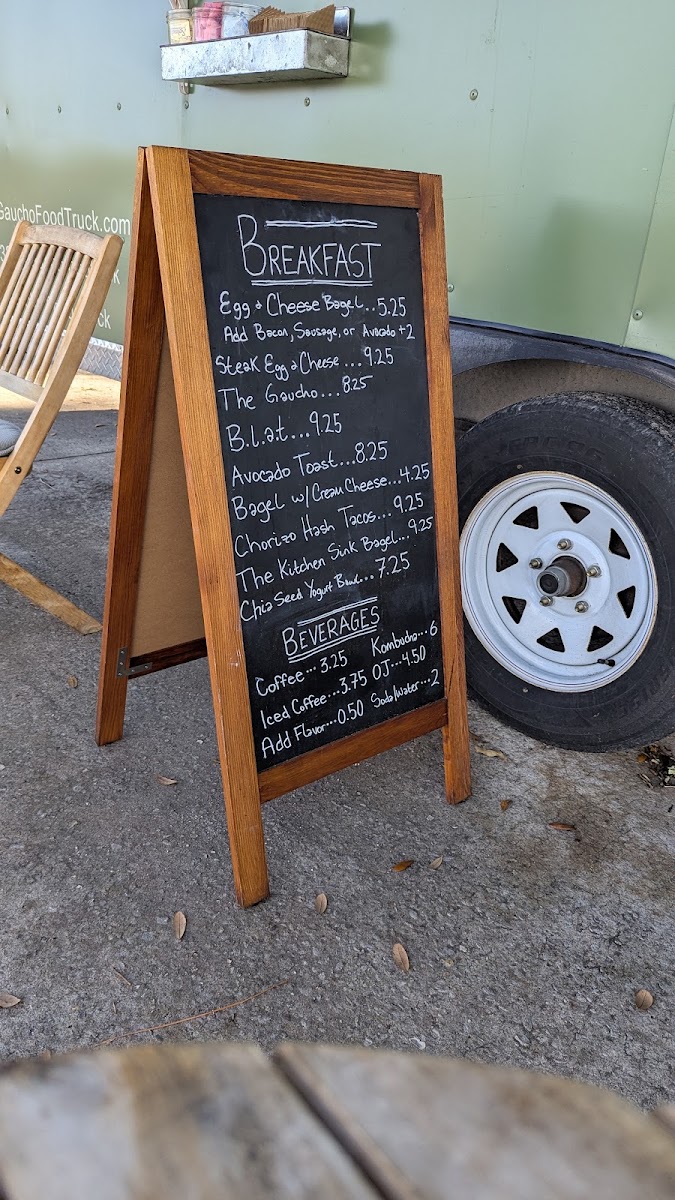 GauchoFoodTruck.com
BREAKFAST
Egg & Cheese Bagel..5.25
Add Bacon, Sausage, or Avocado +2
Steak Egg & Cheese...9.25
The Gaucho...8.25
B.L.a.t...9.25
Avocado Toast...8.25
Bagel w/Cream Cheese...4.25
Chorizo Hash Tacos...9.25
The Kitchen Sink Bagel...9.25
Chia Seed Yogurt Bowl...7.25
BEVERAGES
Coffee...3.25
Iced Coffee...3.75
Add Flavor...0.50
Kombucha...6
OJ...4.50
Soda/water..2